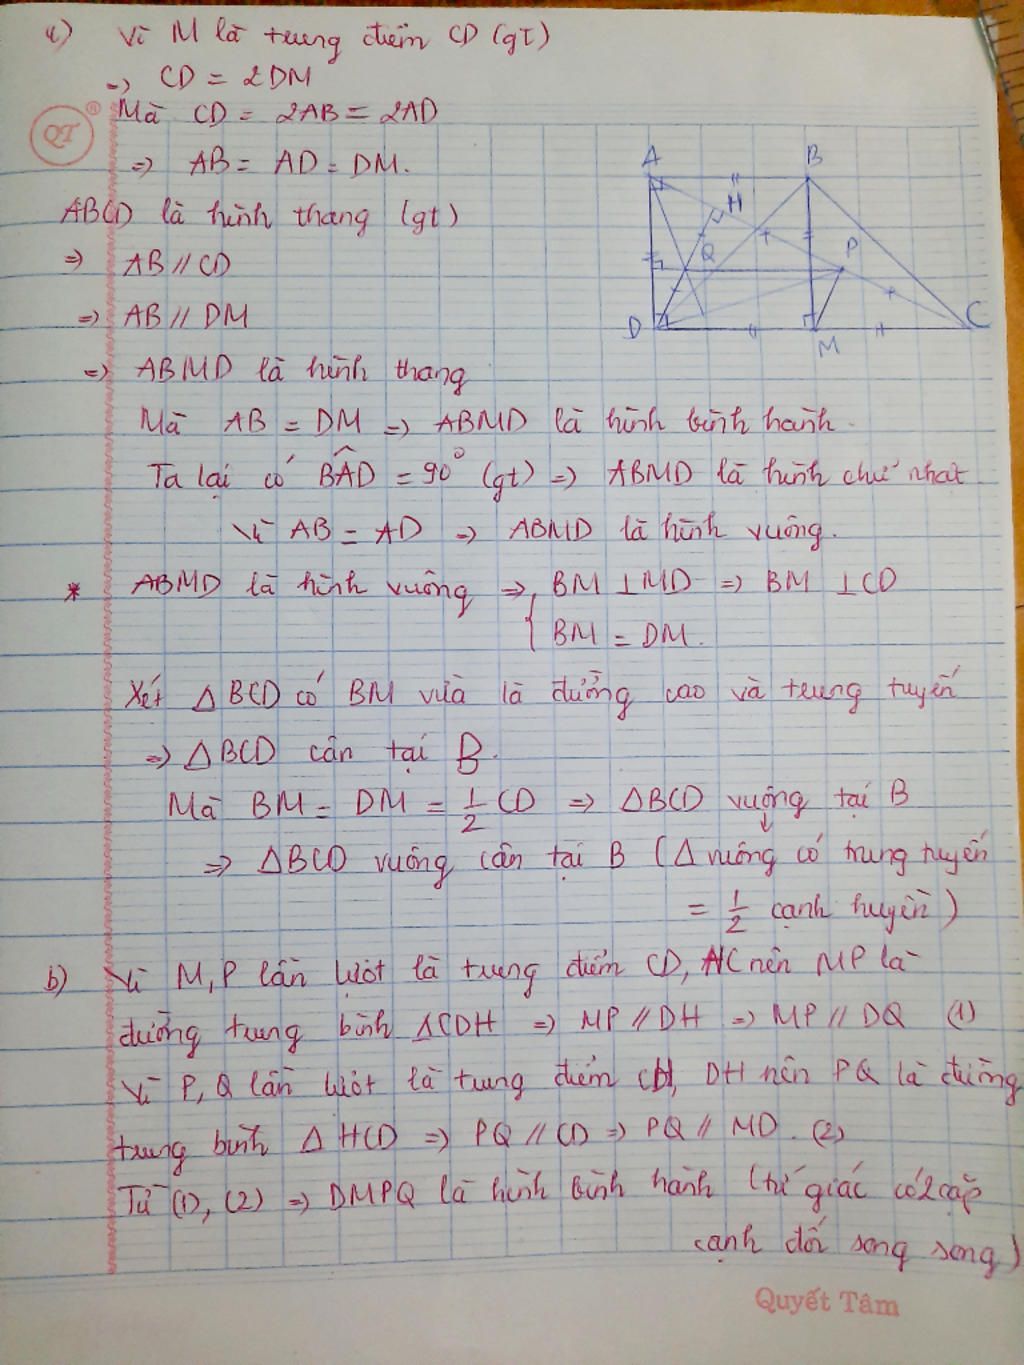 a) Vì M là trung điểm CD (gt)
=> CD = 2DM
Mà CD = 2AB = 2AD
QT ®
=> AB = AD = DM.
ABCD là hình thang (gt)
=> AB // CD
=> AB // DM
=> ABMD là hình thang
A B H Q P D M C
Mà AB = DM => ABMD là hình bình hành.
Ta lại có BÂD = 90° (gt) => ABMD là hình chữ nhật
Vì AB = AD => ABMD là hình vuông.
* ABMD là hình vuông => { BM ⊥ MD => BM ⊥ CD
BM = DM.
Xét Δ BCD có BM vừa là đường cao và trung tuyến
=> Δ BCD cân tại B.
Mà BM = DM = 1/2 CD => ΔBCD vuông tại B
=> ΔBCD vuông cân tại B (Δ vuông có trung tuyến
= 1/2 cạnh huyền)
b) Vì M, P lần lượt là trung điểm CD, HC nên MP là
đường trung bình ΔCDH => MP // DH => MP // DQ (1)
Vì P, Q lần lượt là trung điểm CH, DH nên PQ là đường
trung bình Δ HCD => PQ // CD => PQ // MD. (2)
Từ (1), (2) => DMPQ là hình bình hành (tứ giác có 2 cặp
cạnh đối song song)
Quyết Tâm